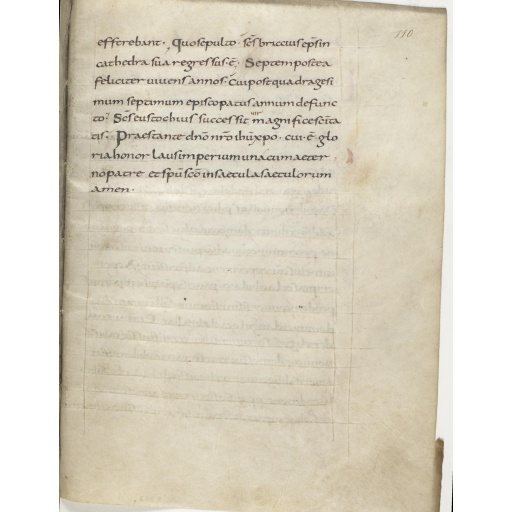 110.
efferebant· Quo sepulto· scs briccius eps in
cathedra sua regressus ē· Septem postea
feliciter vivens annos· Cui post quadragesi
mum septimum episcopatus annum defunc
to· Scs eustochius successit magnifice scita
tis· Praestante dno nro ihu xpo· cui ē glo
ria honor laus imperium una cum aeter
no patre et spu sco in saecula saeculorum
amen·